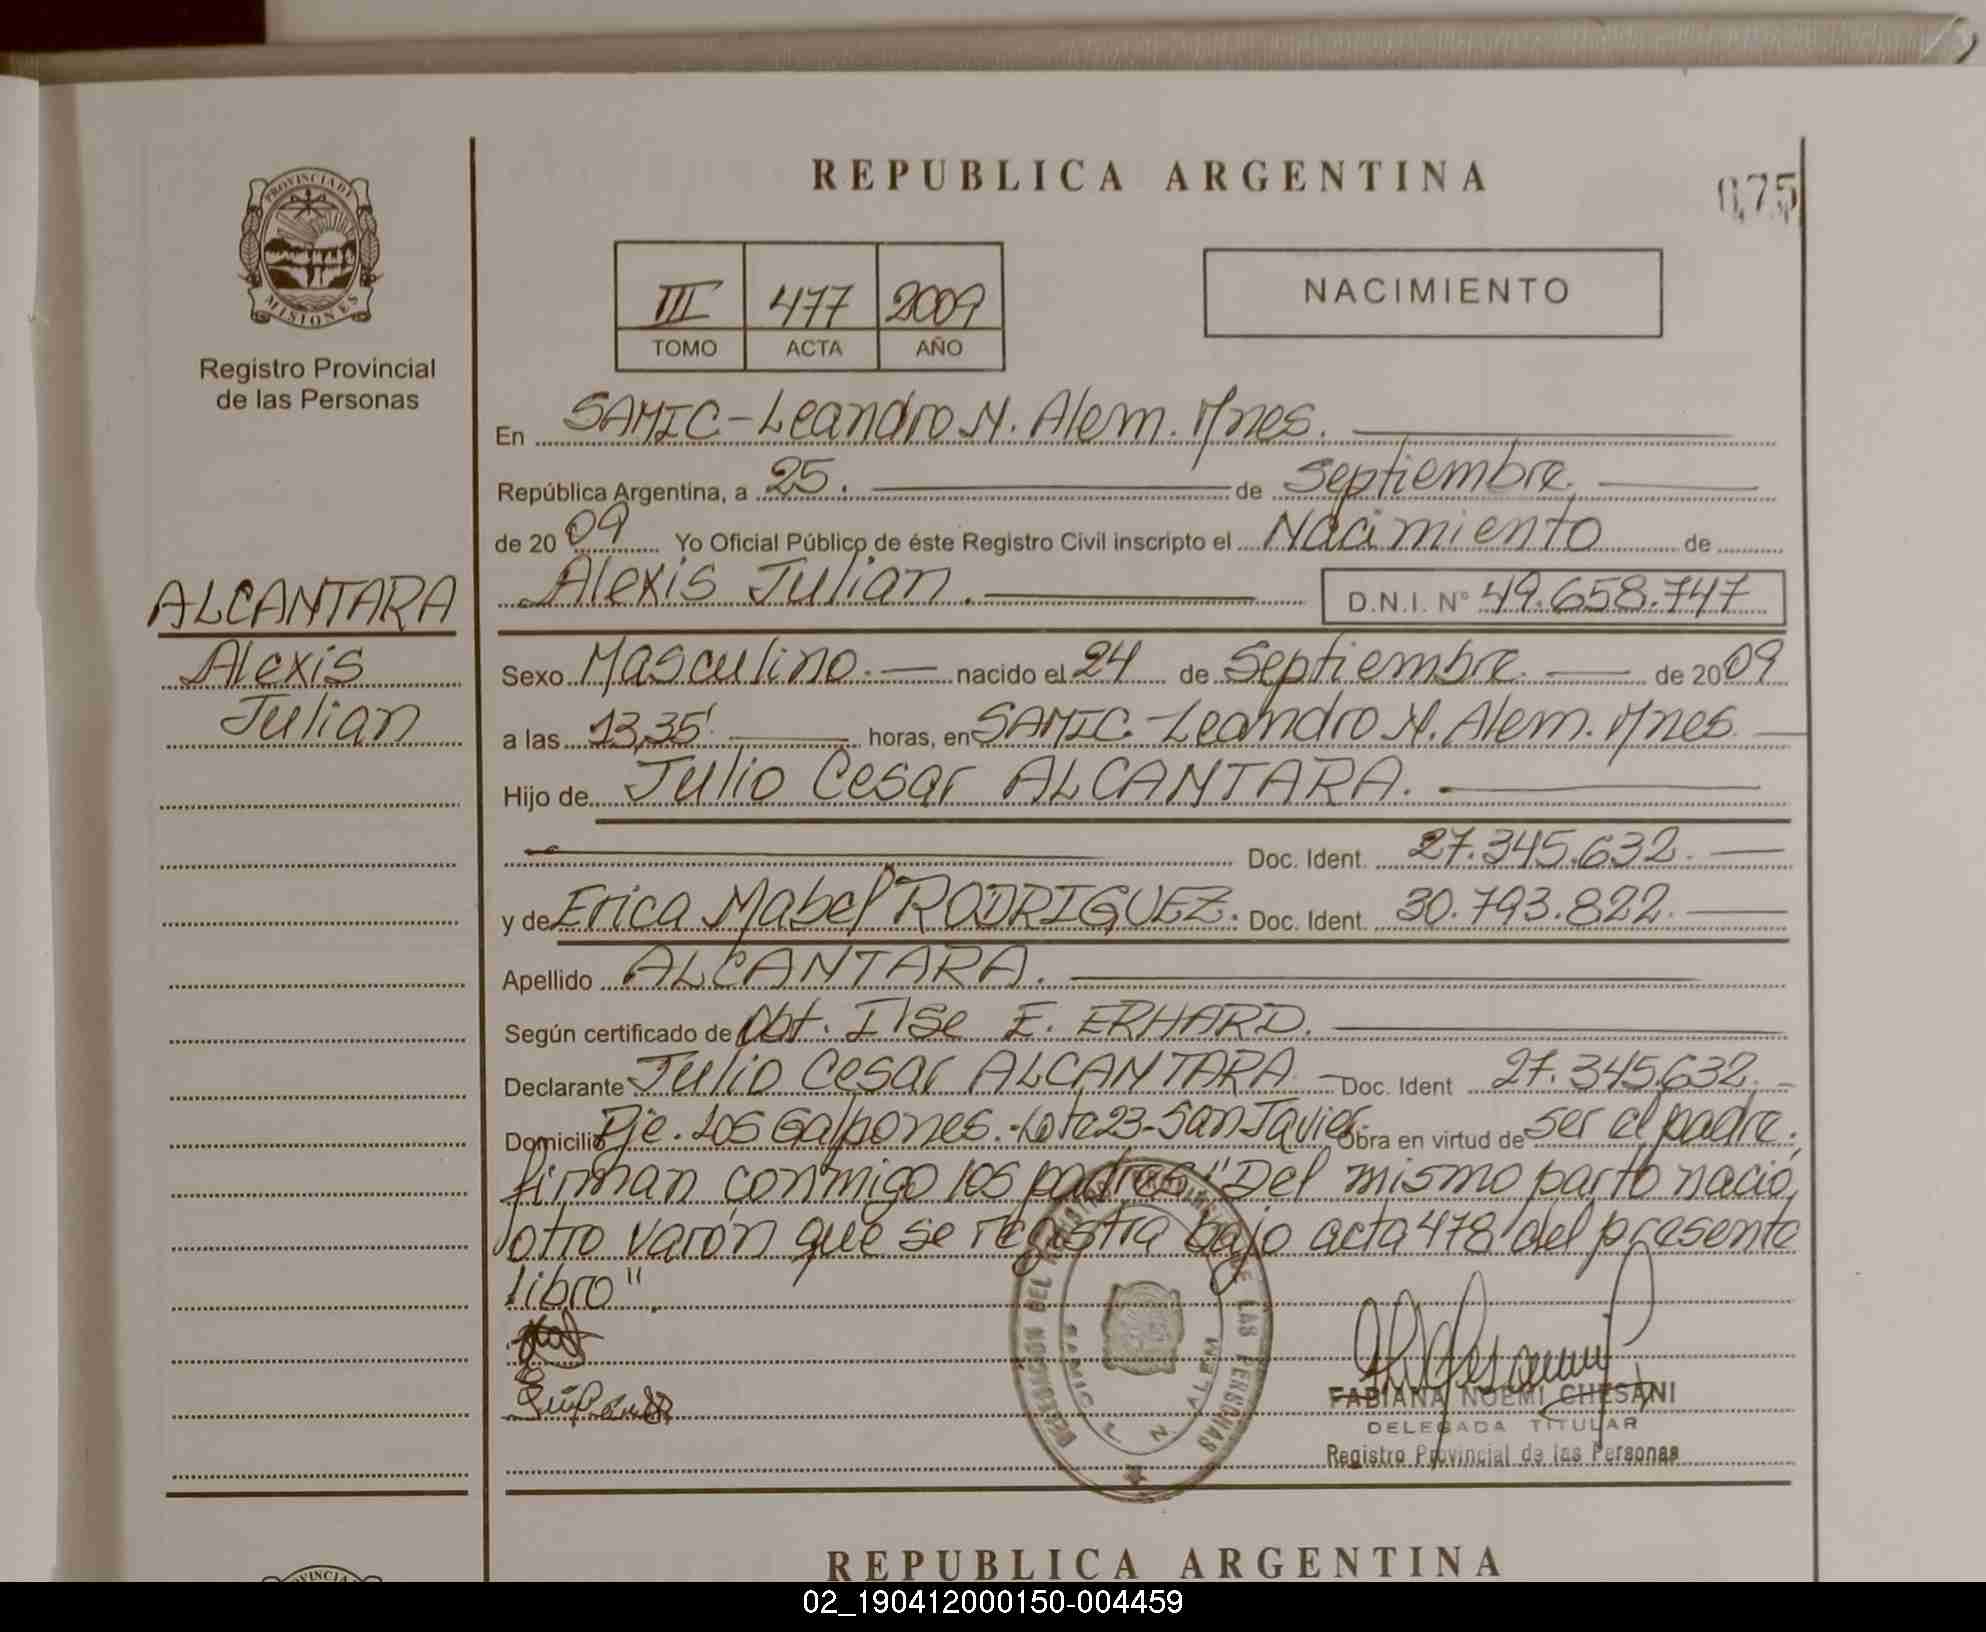 REPUBLICA ARGENTINA
075
PROVINCIA DE
MISIONES
Registro Provincial
de las Personas
III 477 2009
TOMO ACTA AÑO
NACIMIENTO
En SAMIC-Leandro N. Alem. Mnes.
República Argentina, a 25. de Septiembre.
de 2009 Yo Oficial Público de éste Registro Civil inscripto el Nacimiento de
Alexis Julian. D.N.I. Nº 49.658.747
ALCANTARA
Alexis
Julian
Sexo Masculino. nacido el 24 de Septiembre. de 2009
a las 13,35' horas, en SAMIC.-Leandro N. Alem. Mnes.
Hijo de Julio Cesar ALCANTARA.
Doc. Ident. 27.345.632.
y de Erica Mabel RODRIGUEZ. Doc. Ident. 30.793.822.
Apellido ALCANTARA.
Según certificado de Obt. Ilse E. ERHARD.
Declarante Julio Cesar ALCANTARA Doc. Ident 27.345.632.
Domicilio Pje. Los Galpones.-Lote 23-San Javier. Obra en virtud de ser el padre.
firman conmigo los padres. "Del mismo parto nació
otro varón que se registra bajo acta 478 del presente
libro".
DEL LAS PERSONAS
SAMIC L N ALEM
FABIANA NOEMI CHESANI
DELEGADA TITULAR
Registro Provincial de las Personas
REPUBLICA ARGENTINA
02_190412000150-004459